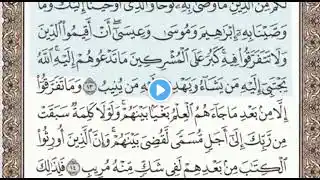 لَكُم مِّنَ الدِّينِ مَا وَصَّىٰ بِهِ نُوحًا وَالَّذِي أَوْحَيْنَا إِلَيْكَ وَمَا
وَصَّيْنَا بِهِ إِبْرَٰهِيمَ وَمُوسَىٰ وَعِيسَىٰ أَنْ أَقِيمُوا الدِّينَ
وَلَا تَتَفَرَّقُوا فِيهِ كَبُرَ عَلَى الْمُشْرِكِينَ مَا تَدْعُوهُمْ إِلَيْهِ اللَّهُ
يَجْتَبِي إِلَيْهِ مَن يَشَاءُ وَيَهْدِي إِلَيْهِ مَن يُنِيبُ ١٣ وَمَا تَفَرَّقُوا
إِلَّا مِن بَعْدِ مَا جَاءَهُمُ الْعِلْمُ بَغْيًا بَيْنَهُمْ وَلَوْلَا كَلِمَةٌ سَبَقَتْ
مِن رَّبِّكَ إِلَىٰ أَجَلٍ مُّسَمًّى لَّقُضِيَ بَيْنَهُمْ وَإِنَّ الَّذِينَ أُورِثُوا
الْكِتَٰبَ مِن بَعْدِهِمْ لَفِي شَكٍّ مِّنْهُ مُرِيبٍ ١٤ فَلِذَٰلِكَ